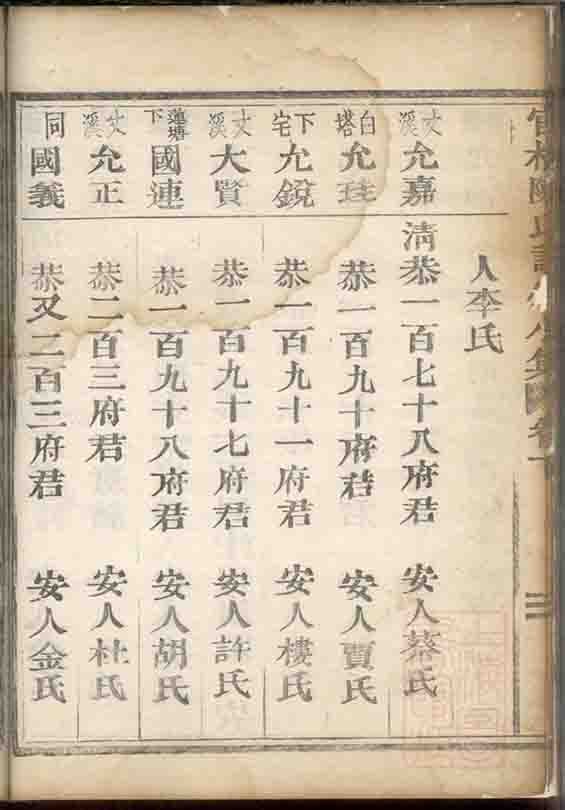 人李氏
文溪 允嘉 清恭一百七十八府君 安人蔡氏
白塔 允珪 恭一百九十府君 安人賈氏
下宅 允銳 恭一百九十一府君 安人樓氏
文溪 大賢 恭一百九十七府君 安人許氏
蓮塘下 國連 恭一百九十八府君 安人胡氏
文溪 允正 恭二百三府君 安人杜氏
同 國義 恭又二百三府君 安人金氏